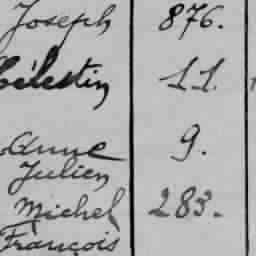 Joseph 876.
Célestin 11.
Anne 9.
Julien
Michel 283.
François